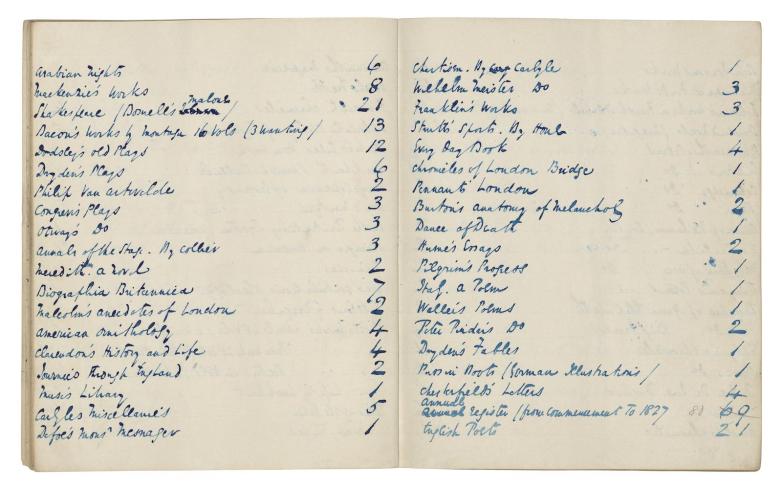 Arabian Nights 6
Mackenzie's Works 8
Shakespeare (Boswell's Malone) 21
Bacon's Works by Montagu 16 Vols (3 wanting) 13
Dodsley's old Plays 12
Dryden's Plays 6
Philip Van Artevelde 2
Congreve's Plays 3
Otway's Do 3
Annals of the Stage. By Collier 3
Meredith. a novel 2
Biographia Britannica 7
Malcolm's anecdotes of London 2
American Ornithology 4
Clarendon's History and Life 4
Journies through England 2
Music Library 1
Carlyle's Miscellanies 5
Defoe's Mons.r Mesnager 1
Chartism. By Carlyle 1
Wilhelm Meister Do 3
Franklin's Works 3
Strutt's Sports. By Hone 1
Every Day Book 4
Chronicles of London Bridge 1
Pennant's London 1
Burton's anatomy of Melancholy 2
Dance of Death 1
Hume's Essays 2
Pilgrim's Progress 1
a Poem 1
Waller's Poems 1
Peter Pindar's Do 2
Dryden's Fables 1
Puss in Boots (German Illustrations) 1
Chesterfield's Letters 4
annual Register (from commencement to 1827 88 69
English Poets 21